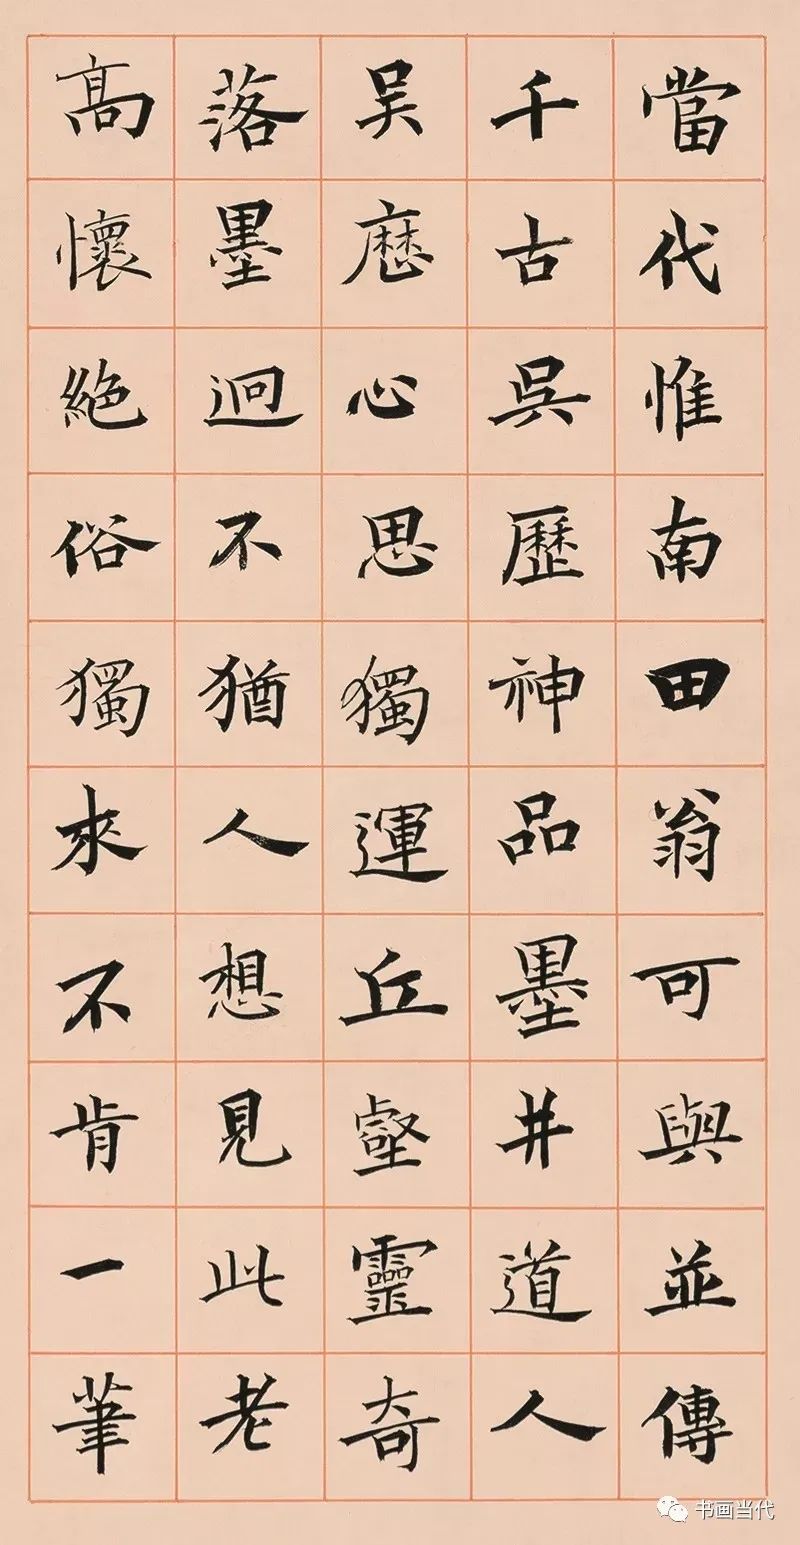 當代惟南田翁可與並傳
千古吳歷神品墨井道人
吴厯心思獨運丘壑靈奇
落墨迥不猶人想見此老
高懷絕俗獨來不肯一筆
书画当代